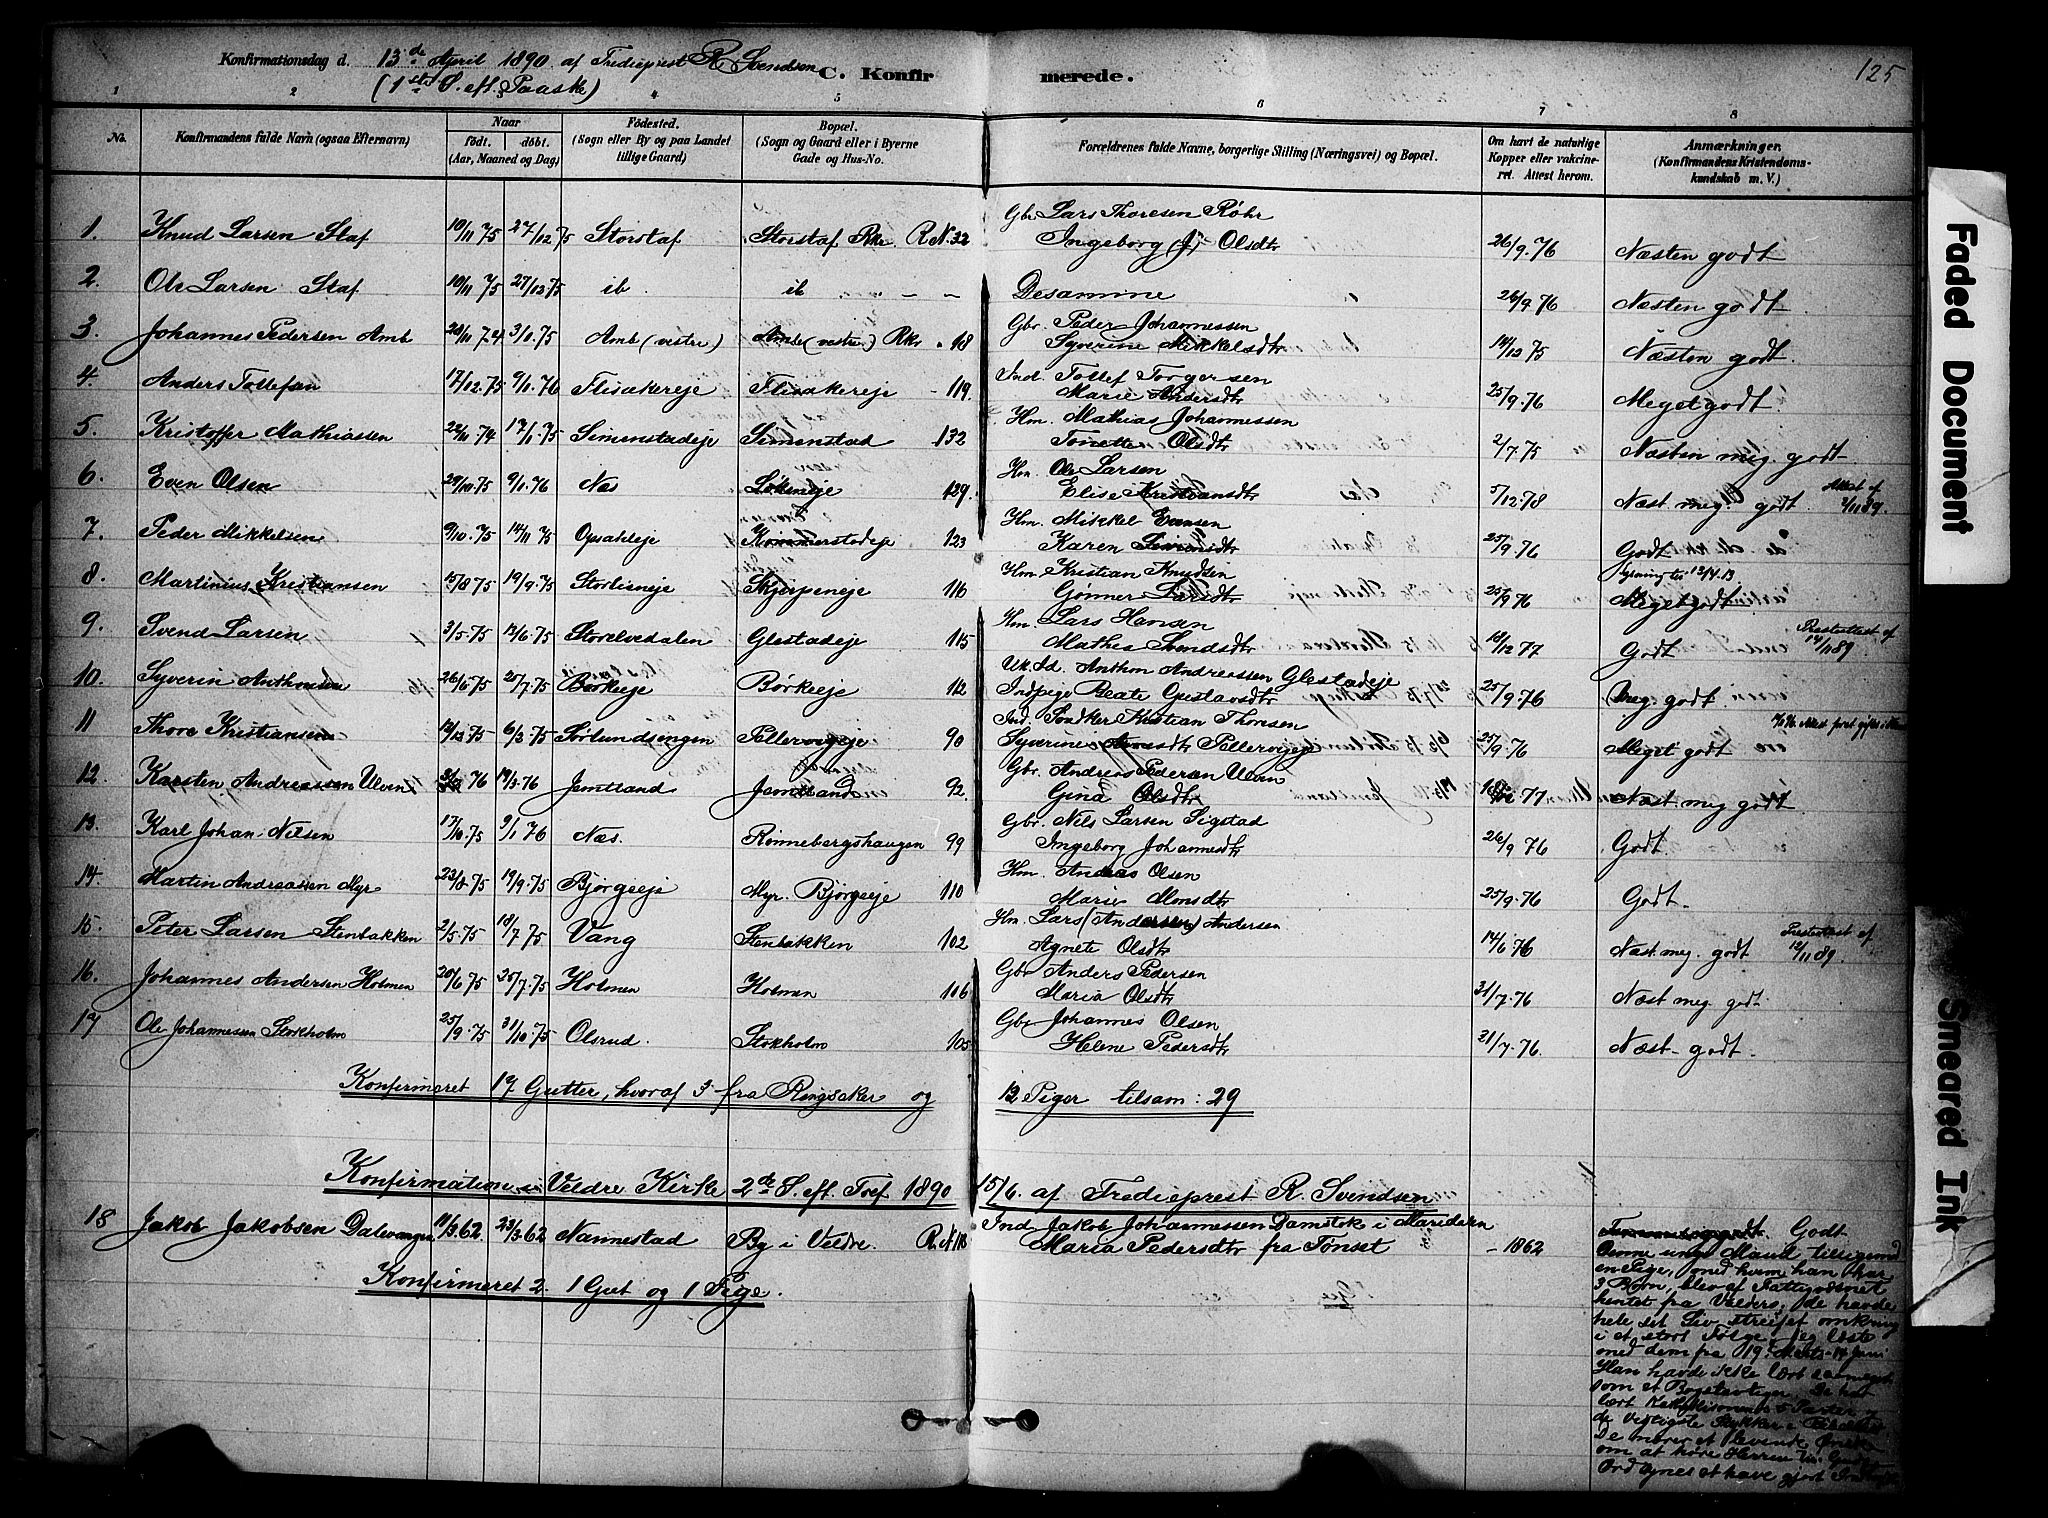 Konfirmationsdag d. 13de April 1890 af Fredieprest R. Svendsen C. Konfirmerede. 125
(1ste S. eft. Paaske)
1 2 3 4 5 6 7 8
No. Konfirmandens fulde Navn (ogsaa Efternavn) Naar født. døbt. (Aar, Maaned og Dag) Fødested. (Sogn eller By og paa Landet tillige Gaard) Bopæl. (Sogn og Gaard eller i Byerne Gade og Hus-No. Forældrenes fulde Navne, borgerlige Stilling (Næringsvei) og Bopæl. Om havt de naturlige Kopper eller vakcineret. Attest herom. Anmærkninger. (Konfirmandens Kristendomskundskab m. V.)
1. Knud Larsen Staf 10/11 75 27/12 75 Storstaf Storstaf Rkr R.N. 32 Gbr Lars Thoresen Røhr
Ingeborg (J) Olsdtr 26/9.76 Næsten godt
2. Ole Larsen Staf 10/11 75 27/12 75 ib. ib - - Desamme 26/9.76 Næsten godt
3. Johannes Pedersen Amb 20/11 74 3/1 75 Amb (vestre) Amb (vestre) Rkr " 118 Gbr. Peder Johannessen
Syverine Mikkelsdtr 14/12 75 Næsten godt
4. Anders Tollefsen 17/12.75 9/1.76 Flisakereje Flisakereje - 119. Ind. Tollef Torgersen
Marie Andersdtr 25/9.76 Meget godt
5. Kristoffer Mathiassen 22/11 74 17/1.75 Simenstadeje Simenstad 132 Hm. Mathias Johannessen
Tonette Olsdtr 2/7.75 Næsten meg. godt
6. Even Olsen 29/10.75 9/1.76 Næs Løkeneje 129. Hm. Ole Larsen
Elise Kristiansdtr 5/12.78 Næst. meg. godt Attest af 2/11 89.
7. Peder Mikkelsen 9/10.75 14/11 75 Opsateje Kommerstadeje 123 Hm. Mikkel Evensen
Karen Simensdtr 25/9.76 Godt
8. Martinius Kristiansen 15/8 75 19/9.75 Storlieneje Skjerpeneje 116 Hm Kristian Knudsen
Gonner Larsdtr 25/9 76 Meget godt
9. Svend Larsen 3/5.75 12/6.75 Storelvedalen Glestadeje 115 Hm. Lars Hansen
Mathea Svendsdtr 18/12 77 Godt Presteatest af 14/11 89
10. Syverin Anthonsen 26/6.75 25/7.75 Børkeeje Børkeeje 112 Uk.Id. Anthon Andreassen Glestadeje
Indpige Beate Gustavsdtr 25/9.76 Meg. godt
11 Thore Kristiansen 14/12 75 6/3.75 Sørlundsengen Pellervigeje 90 Ind. Sndker Kristian Thoresen
Syverine Pellervigeje 25/9.76 Meget godt
12. Karsten Andreassen Ulven 76 19/3.76 Jemtland Jemtland 92. Gbr. Andreas Pedersen Ulven
Gina Olsdtr 77 Næst meg godt
13. Karl Johan Nilsen 17/10.75 9/1 76 Næs. Rønnebergshaugen 99 Gbr. Nils Larsen Sigstad
Ingeborg Johannesdtr 26/9 76 Godt.
14. Martin Andreassen Myr 23/8.75 19/9.75 Bjørgeeje Myr. Bjørgeeje 110 Hm. Andreas Olsen
Marie Monsdtr 25/9.76 Godt.
15. Peter Larsen Stenbakken 2/5.75 18/7 75 Vang Stenbakken 102 Hm. Lars (Andersen) Andersen
Agnete Olsdtr 14/6.76 Næst. meg. godt Presteatest af 12/11 89.
16. Johannes Andersen Holmen 20/6 75 25/7.75 Holmen Holmen 106 Gbr Anders Pedersen
Maria Olsdtr 31/7.76 Næst meg. godt.
17 Ole Johannessen Stokholm 25/9.75 31/10 75 Olsrud. Stokholm 105 Gbr Johannes Olsen
Helene Pedersdtr 31/7.76. Næst. godt.
Konfirmeret 17 Gutter, hvoraf 3 fra Ringsaker og 12 Piger tilsam: 29
Konfirmation i Veldre Kirke 2de S. eft. Tref 1890 15/6. af Fredieprest R. Svendsen
18 Jakob Jakobsen Dalevangen 11/3.62 23/3.62 Nannestad By i Veldre. R.N. 118 Ind Jakob Johannessen Damstok i Maridalen
Maria Pedersdtr fra Tønset - 1862 Godt
Konfirmeret 2. 1 Gut og 1 Pige.
Denne unge Mand tilligemed
en Pige, med hvem han har
3 Børn, blev af Fattigvæsnet
hentet fra Valders; de havde
hele sit Liv streifet omkring
i et stort Følge. Jeg læste
med dem fra 19. Marts - 14 Juni
Han havde ikke lært saameget
som et Bogstavtegn. De har
lært Katekismens 5 Parter,
de vigtigste Stykker i
De nærer et levende Ønske
om at høre Herren
Ord synes at have gjort
Faded Document
Smeared Ink